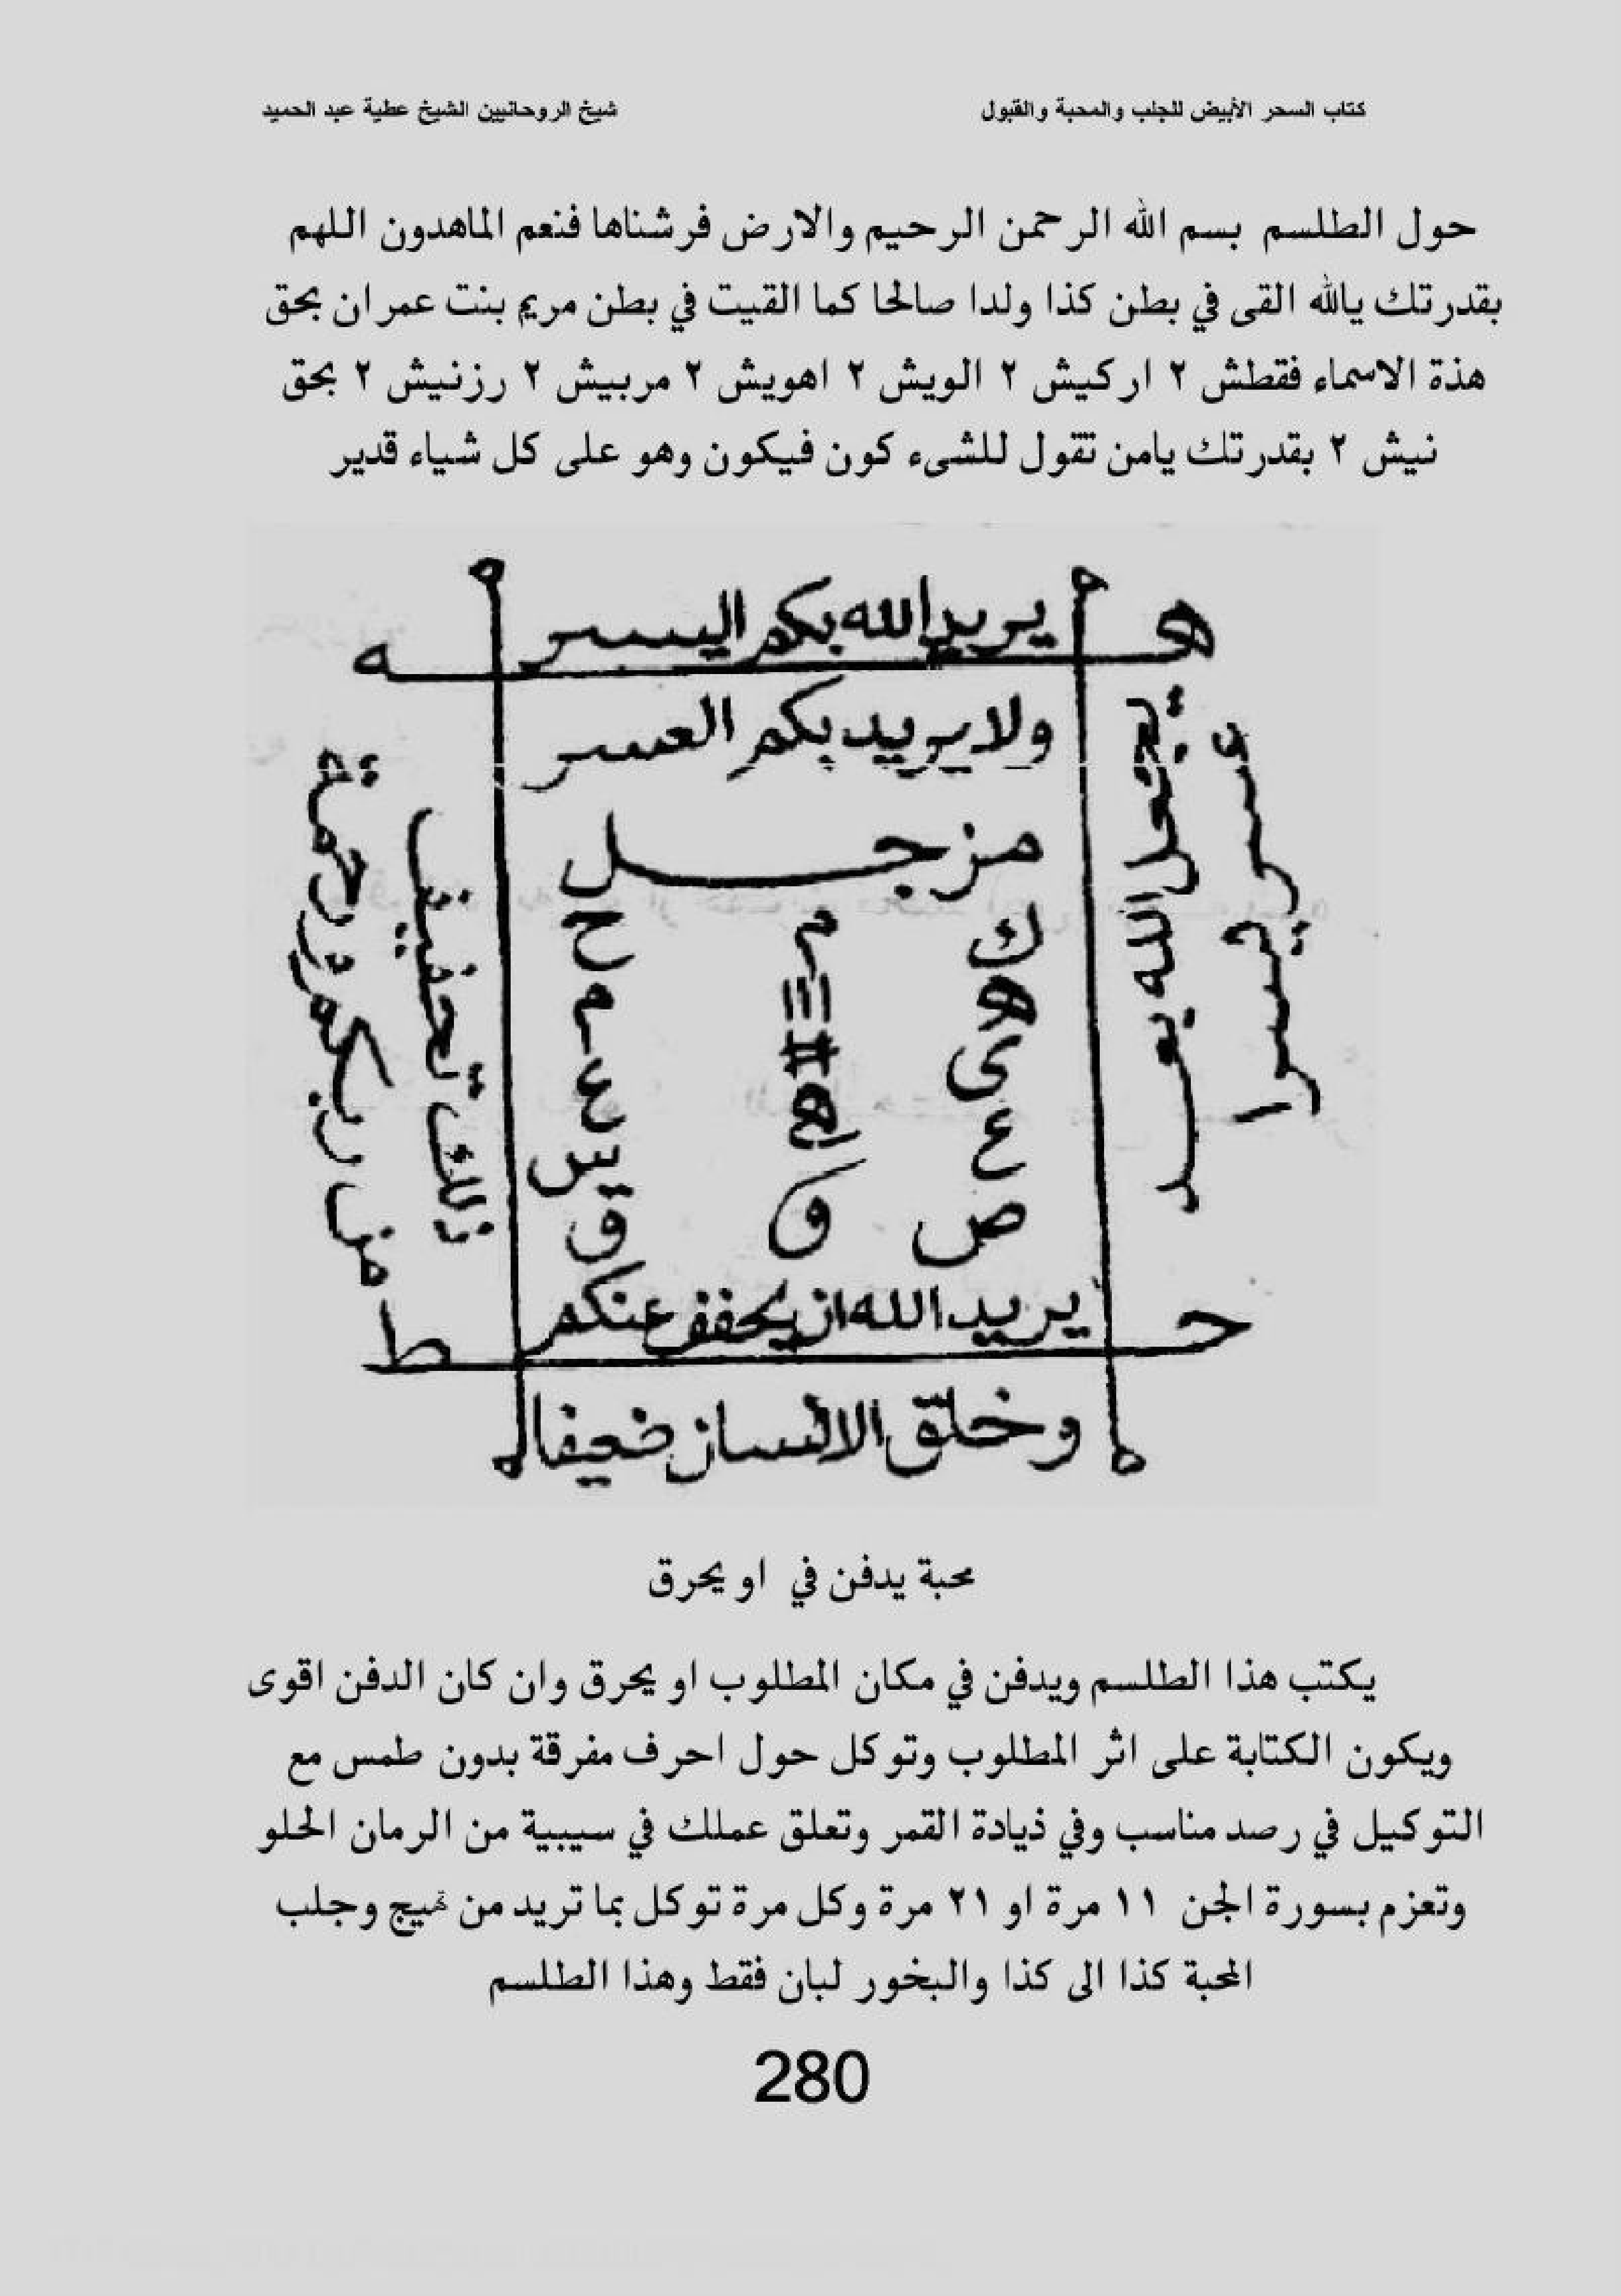 كتاب السحر الأبيض للجلب والمحبة والقبول
شيخ الروحانيين الشيخ عطية عبد الحميد
حول الطلسم بسم الله الرحمن الرحيم والارض فرشناها فنعم الماهدون اللهم
بقدرتك يالله القى في بطن كذا ولدا صالحا كما القيت في بطن مريم بنت عمران بحق
هذة الاسماء فقطش ٢ اركيش ٢ الويش ٢ اهويش ٢ مربيش ٢ رزنيش ٢ بحق
نيش ٢ بقدرتك يامن تقول للشىء كون فيكون وهو على كل شياء قدير
يريد الله بكم اليسر
ه
ه
ولا يريد بكم العسر
سيجعل الله بعد
عسر يسرا
ذلك تخفيف
من ربكم ورحمة
ك
ه
ى
ع
ص
م
ق
ح
م
ع
س
ق
يريد الله ان يخفف عنكم
ح
ط
وخلق الانسان ضعيفا
محبة يدفن في او يحرق
يكتب هذا الطلسم ويدفن في مكان المطلوب او يحرق وان كان الدفن اقوى
ويكون الكتابة على اثر المطلوب وتوكل حول احرف مفرقة بدون طمس مع
التوكيل في رصد مناسب وفي ذيادة القمر وتعلق عملك في سيبية من الرمان الحلو
وتعزم بسورة الجن ١١ مرة او ٢١ مرة وكل مرة توكل بما تريد من تهيج وجلب
المحبة كذا الى كذا والبخور لبان فقط وهذا الطلسم
280